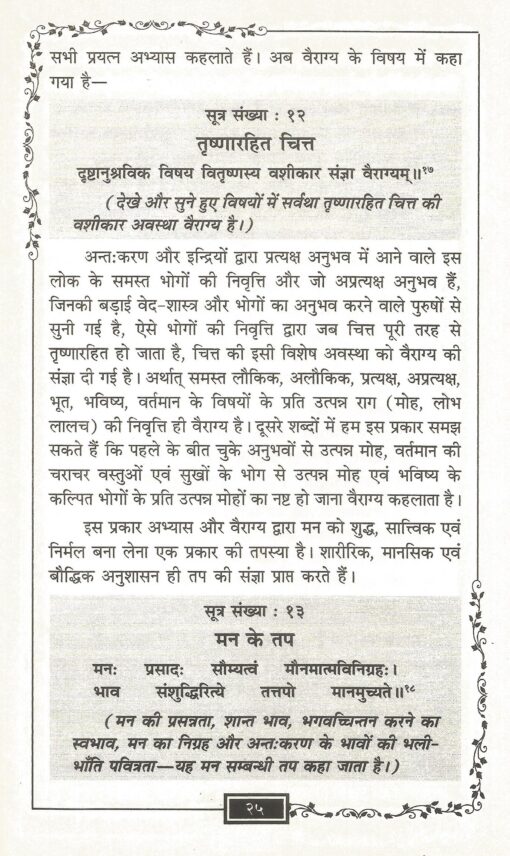 सभी प्रयत्न अभ्यास कहलाते हैं। अब वैराग्य के विषय में कहा
गया है—
सूत्र संख्या : १२
तृष्णारहित चित्त
दृष्टानुश्रविक विषय वितृष्णस्य वशीकार संज्ञा वैराग्यम्॥१७
(देखे और सुने हुए विषयों में सर्वथा तृष्णारहित चित्त की
वशीकार अवस्था वैराग्य है।)
अन्त:करण और इन्द्रियों द्वारा प्रत्यक्ष अनुभव में आने वाले इस
लोक के समस्त भोगों की निवृत्ति और जो अप्रत्यक्ष अनुभव हैं,
जिनकी बड़ाई वेद-शास्त्र और भोगों का अनुभव करने वाले पुरुषों से
सुनी गई है, ऐसे भोगों की निवृत्ति द्वारा जब चित्त पूरी तरह से
तृष्णारहित हो जाता है, चित्त की इसी विशेष अवस्था को वैराग्य की
संज्ञा दी गई है। अर्थात् समस्त लौकिक, अलौकिक, प्रत्यक्ष, अप्रत्यक्ष,
भूत, भविष्य, वर्तमान के विषयों के प्रति उत्पन्न राग (मोह, लोभ
लालच) की निवृत्ति ही वैराग्य है। दूसरे शब्दों में हम इस प्रकार समझ
सकते हैं कि पहले के बीत चुके अनुभवों से उत्पन्न मोह, वर्तमान की
चराचर वस्तुओं एवं सुखों के भोग से उत्पन्न मोह एवं भविष्य के
कल्पित भोगों के प्रति उत्पन्न मोहों का नष्ट हो जाना वैराग्य कहलाता है।
इस प्रकार अभ्यास और वैराग्य द्वारा मन को शुद्ध, सात्त्विक एवं
निर्मल बना लेना एक प्रकार की तपस्या है। शारीरिक, मानसिक एवं
बौद्धिक अनुशासन ही तप की संज्ञा प्राप्त करते हैं।
सूत्र संख्या : १३
मन के तप
मन: प्रसाद: सौम्यत्वं मौनमात्मविनिग्रह:।
भाव संशुद्धिरित्ये तत्तपो मानमुच्यते॥१८
(मन की प्रसन्नता, शान्त भाव, भगवच्चिन्तन करने का
स्वभाव, मन का निग्रह और अन्त:करण के भावों की भली-
भाँति पवित्रता—यह मन सम्बन्धी तप कहा जाता है।)
२५